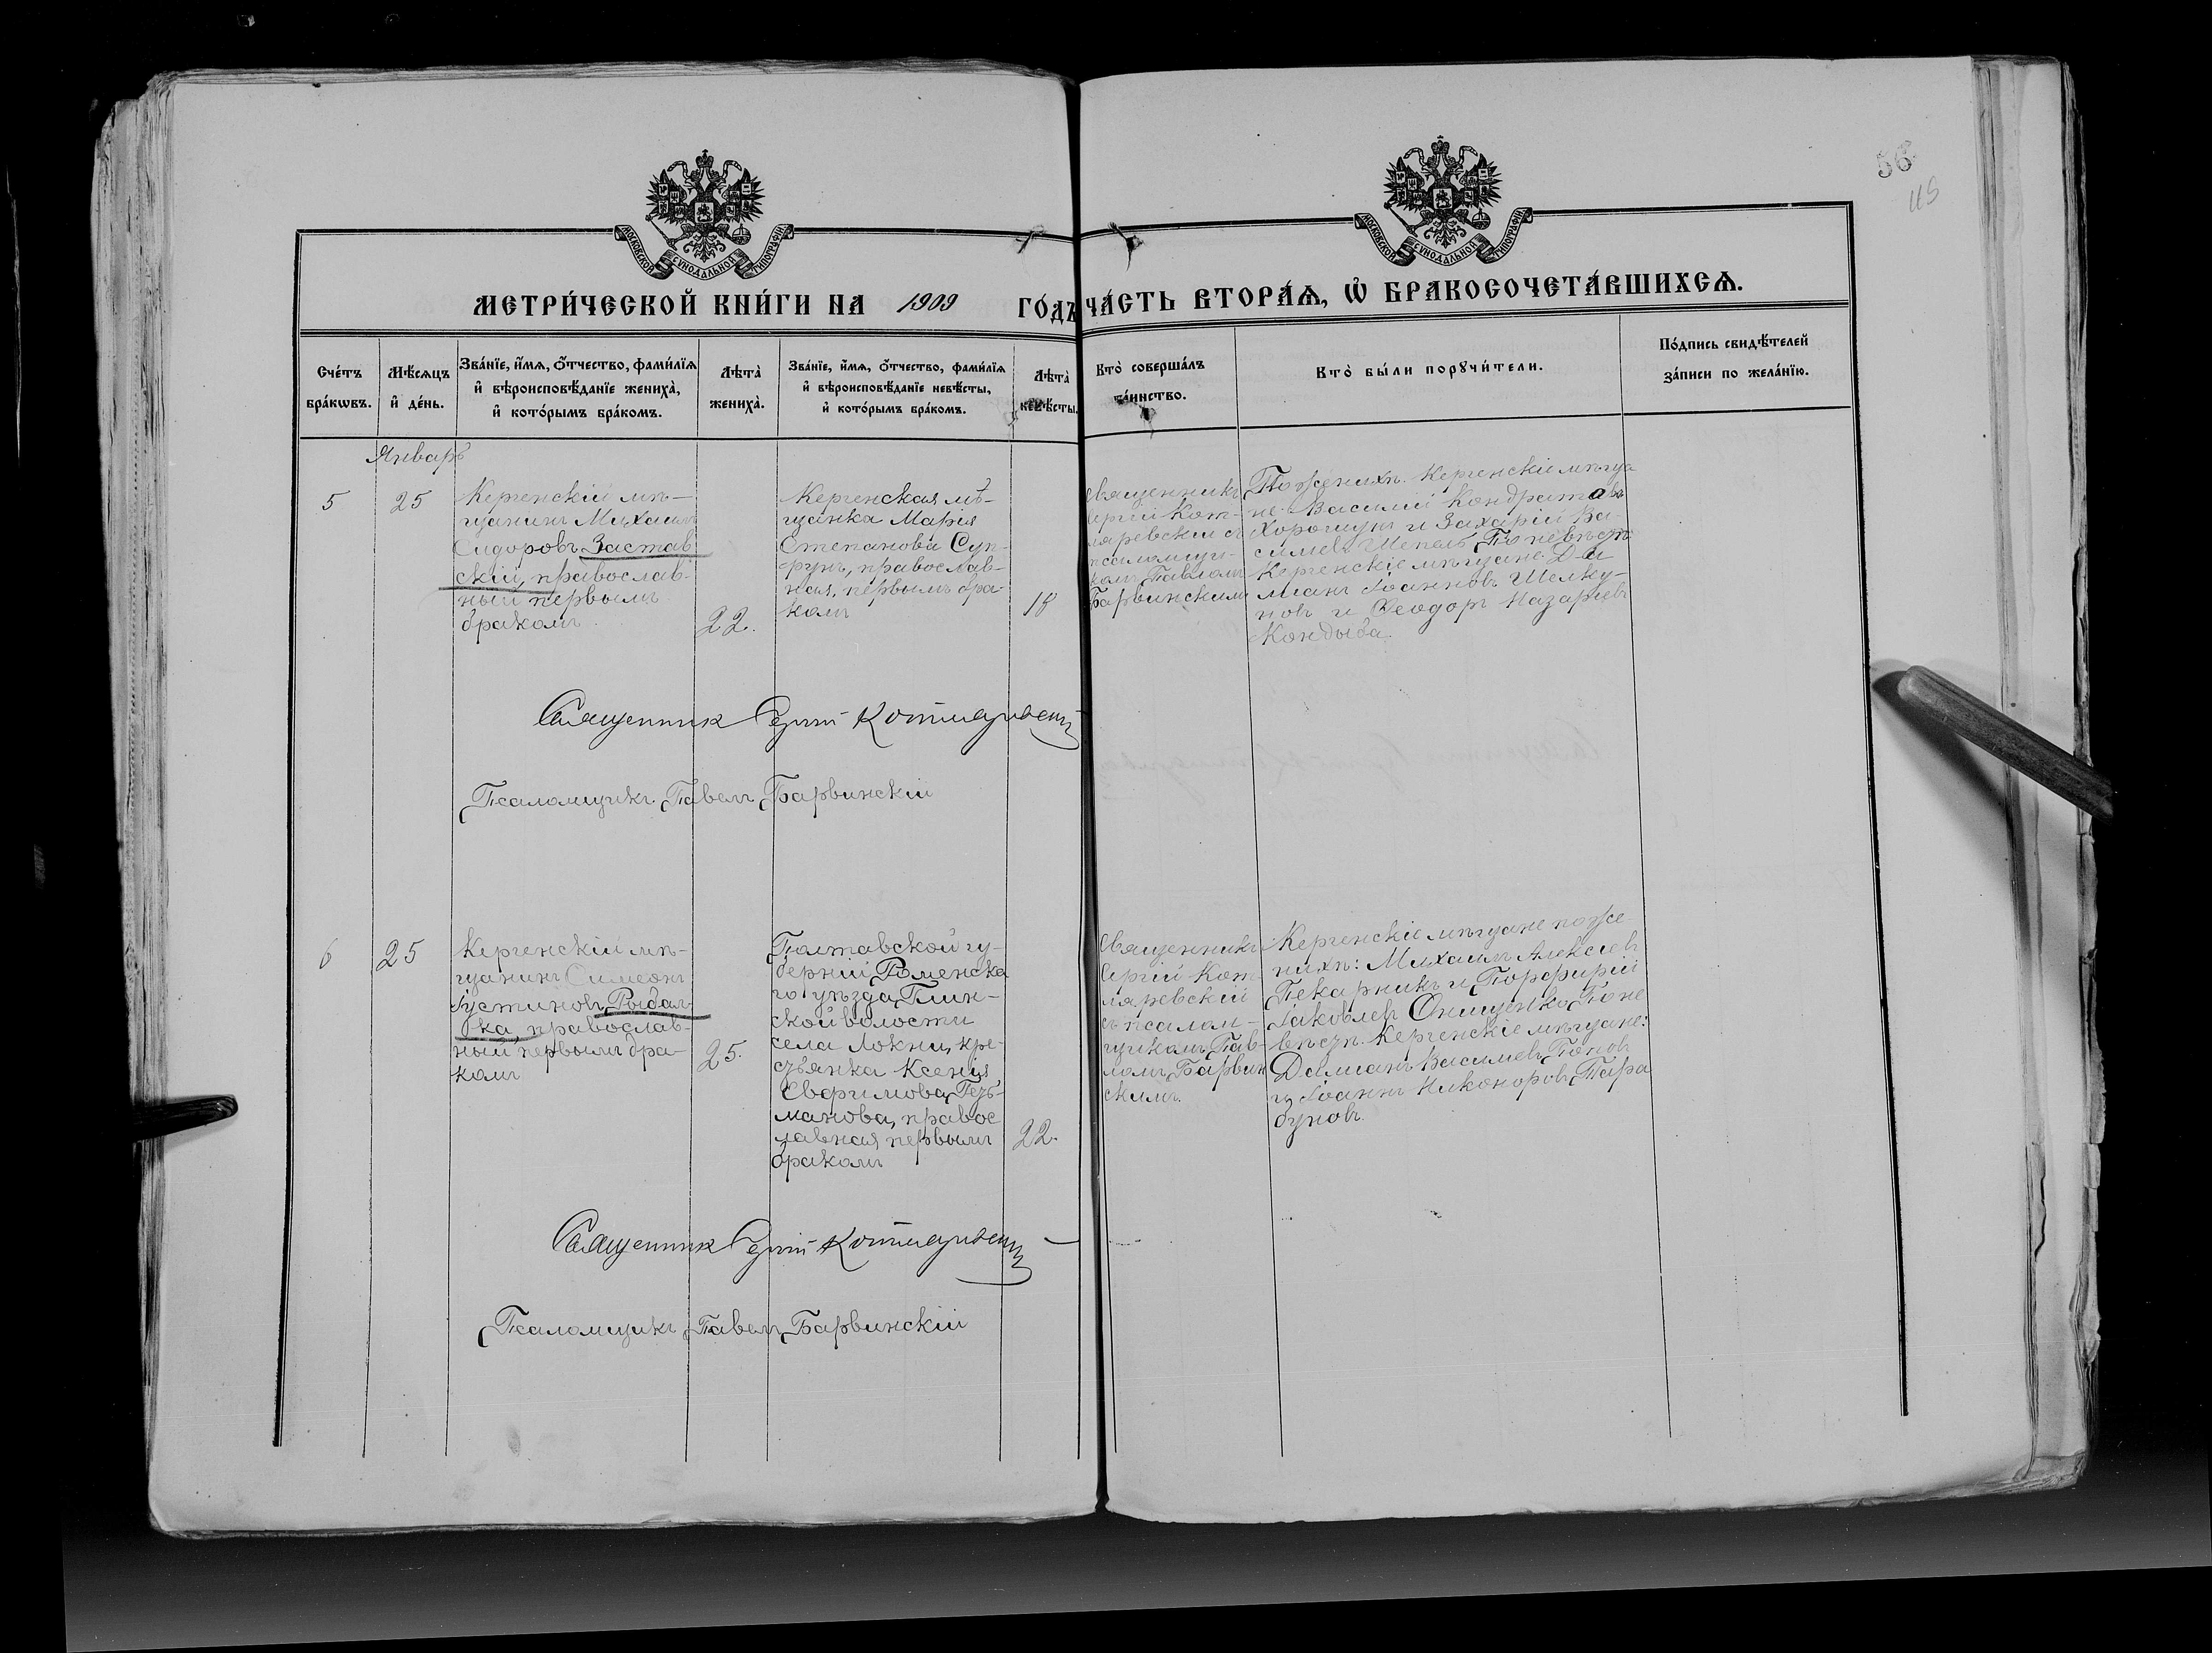 56
115
МОСКОВСКОЙ СѴНОДАЛЬНОЙ ТИПОГРАФІИ
МОСКОВСКОЙ СѴНОДАЛЬНОЙ ТИПОГРАФІИ
МЕТРИ́ЧЕСКОЙ КНИ́ГИ НА 1909 ГО́ДЪ
ЧА́СТЬ ВТОРА́Ѧ, Ѽ БРАКОСОЧЕТА́ВШИХСѦ.
Сче́тъ
бра́кѡвъ.
Мѣ́сѧцъ
и҆ де́нь.
Зва́нїе, и҆́мѧ, ѻ҆́тчество, фами́лїѧ
и҆ вѣроисповѣ́данїе жениха̀,
и҆ кото́рымъ бра́комъ.
Лѣта̀
жениха̀.
Зва́нїе, и҆́мѧ, ѻ҆́тчество, фами́лїѧ
и҆ вѣроисповѣ́данїе невѣ́сты,
и҆ кото́рымъ бра́комъ.
Лѣта̀
невѣ́сты.
Кто̀ соверша́лъ
та́инство.
Кто̀ бы́ли порꙋчи́тели.
По́дпись свидѣ́телей
за́писи по жела́нїю.
Январь
5
25
Керченскій мѣ-
щанинъ Михаилъ
Сидоровъ Застав
скій, православ-
ный первымъ
бракомъ
22.
Керченская мѣ-
щанка Марія
Степанова Суп-
рунъ, православ-
ная, первымъ бра-
комъ
18
Священникъ
Сергій Кот-
ляревскій съ
псаломщи-
комъ Павломъ
Барвинскимъ
По женихѣ. Керченскіе мѣща
не Василій Кондратовъ
Хорошунъ и Захарій Ва-
сильевъ Шепель По невѣстѣ
Керченскіе мѣщане Да
міанъ Іоанновъ Шелку-
новъ и Ѳеодоръ Назаріевъ
Кондыба.
Священникъ Сергій Котляревскій
Псаломщикъ Павелъ Барвинскій
6
25
Керченскій мѣ-
щанинъ Симеонъ
Іустиновъ Рыбал-
ка, православ-
ный, первымъ бра-
комъ
25.
Полтавской гу-
берніи Роменска
го уѣзда Глин-
ской волости
села Локни, кре-
стьянка Ксенія
Евфимова Гезь-
манова, правос
лавная, первымъ
бракомъ
22.
Священникъ
Сергій Кот
ляревскій
съ псалом-
щикомъ Пав-
ломъ Барвин
скимъ.
Керченскіе мѣщане по же-
нихѣ: Михаилъ Алексѣевъ
Пекарникъ и Порфирій
Іаковлевъ Онищенко По не
вѣстѣ. Керченскіе мѣщане:
Даміанъ Васильевъ Поповъ
и Іоаннъ Никоноровъ Тара
буновъ.
Священникъ Сергій Котляревскій
Псаломщикъ Павелъ Барвинскій